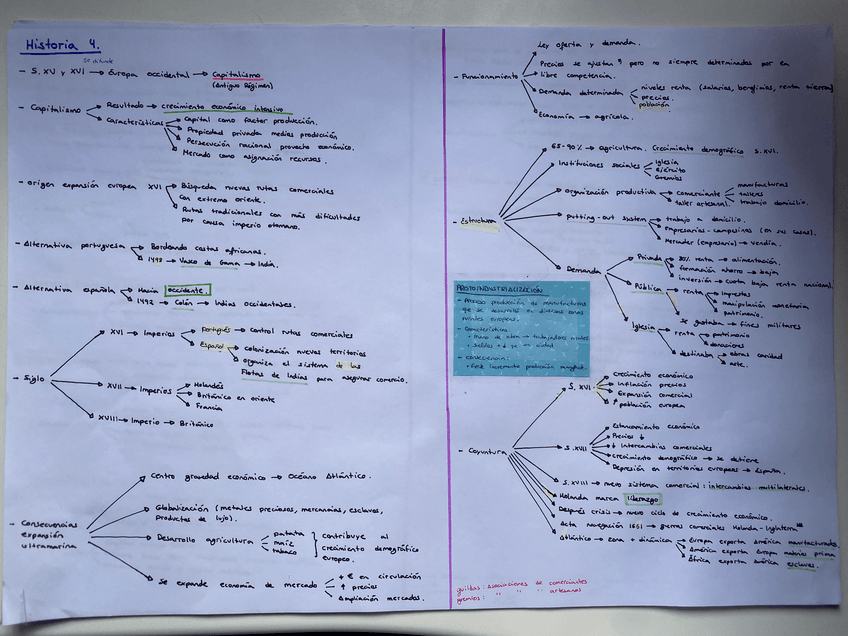 Historia 4.
Se difunde
- S. XV y XVI → Europa occidental → Capitalismo
(Antiguo Régimen)
- Capitalismo
Resultado → crecimiento económico intensivo
Características
Capital como factor producción.
Propiedad privada medios producción
Persecución racional provecho económico.
Mercado como asignación recursos.
- Origen expansión europea XVI
Búsqueda nuevas rutas comerciales
con extremo oriente.
Rutas tradicionales con más dificultades
por causa imperio otomano.
- Alternativa portuguesa
Bordeando costas africanas.
1498 → Vasco de Gama → India.
- Alternativa española
Hacia occidente.
1492 → Colón → Indias occidentales.
- Siglo
XVI → Imperios
Portugués → control rutas comerciales
Español
colonización nuevos territorios
organiza el sistema de las
Flotas de Indias para asegurar comercio.
XVII → Imperios
Holandés
Británico en oriente
Francia
XVIII → Imperio → Británico
- Consecuencias
expansión
ultramarina
Centro gravedad económico → Océano Atlántico.
Globalización (metales preciosos, mercancías, esclavos,
productos de lujo).
Desarrollo agricultura
patata
maíz
tabaco
contribuye al
crecimiento demográfico
europeo.
Se expande economía de mercado
+ € en circulación
↑ precios
Ampliación mercados.
- Funcionamiento
Ley oferta y demanda.
Precios se ajustan pero no siempre determinados por en
libre competencia.
Demanda determinada
niveles renta (salarios, beneficios, renta tierra)
precios.
población
Economía → agrícola.
- Estructura
65-90% → agricultura. Crecimiento demográfico S. XVI.
Instituciones sociales
Iglesia
Ejército
Gremios
Organización productiva
comerciante
manufacturas
talleres
trabajo domicilio.
taller artesanal.
Putting-out system
trabajo a domicilio.
Empresarios - campesinos (en sus casas).
Mercader (empresario) → vendía.
Demanda
Privada
80% renta → alimentación.
formación ahorro → baja
inversión → cuota baja renta nacional.
Pública
renta
impuestos
manipulación monetaria
patrimonio.
se gastaba → fines militares
Iglesia
renta
patrimonio
donaciones
destinaba
obras caridad
arte.
PROTOINDUSTRIALIZACIÓN
- Proceso producción de manufacturas
que se desarrolló en diversas zonas
rurales europeas.
- Características:
• Mano de obra → trabajadores rurales
- Consecuencia:
- Coyuntura
S. XVI
Crecimiento económico
Inflación precios
Expansión comercial
↑ población europea
S. XVII
Estancamiento económico
Precios ↓
↓ Intercambios comerciales
crecimiento demográfico → se detiene
Depresión en territorios europeos → España.
S. XVIII → nuevo sistema comercial: intercambios multilaterales.
Holanda marca liderazgo
Después crisis → nuevo ciclo de crecimiento económico.
Acta navegación 1651 → guerras comerciales Holanda - Inglaterra
Atlántico → zona + dinámica
Europa exporta América manufacturados
América exporta Europa materias prima
África exporta América esclavos.
guildas: asociaciones de comerciantes
gremios: " " " artesanos